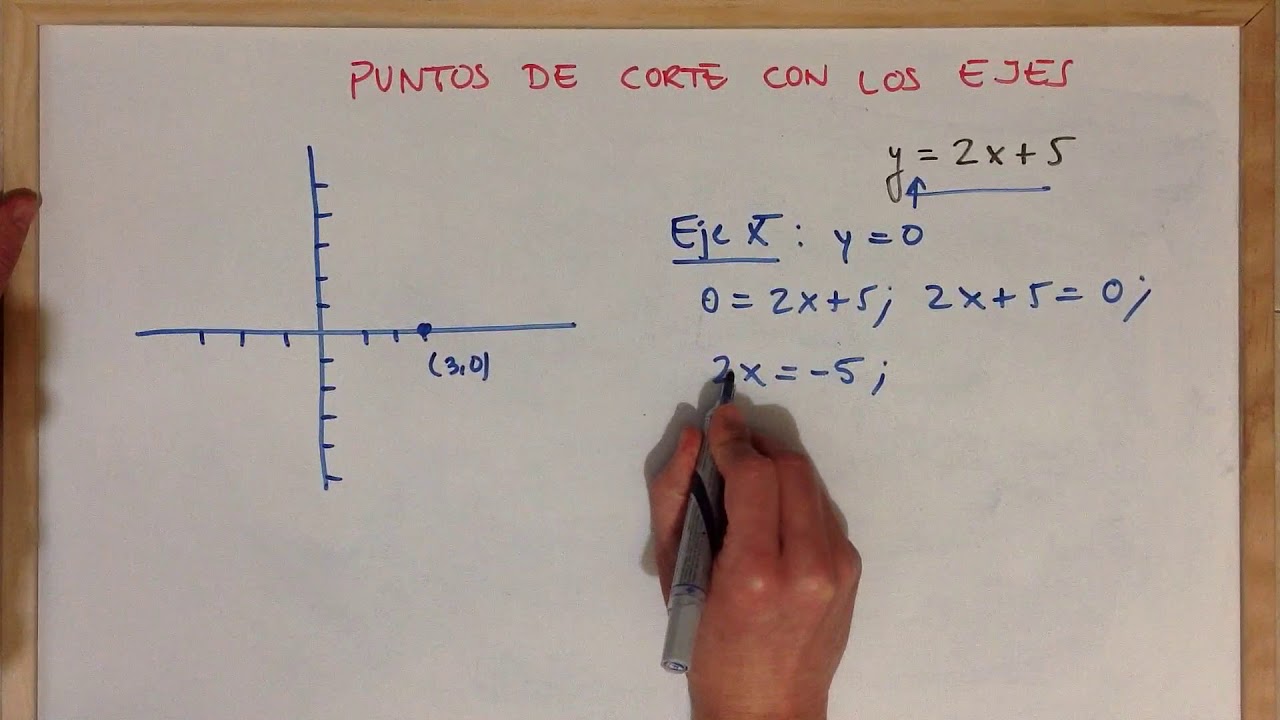 PUNTOS DE CORTE CON LOS EJES
y = 2x + 5
Eje X : y = 0
0 = 2x + 5; 2x + 5 = 0;
(3,0)
2x = -5;